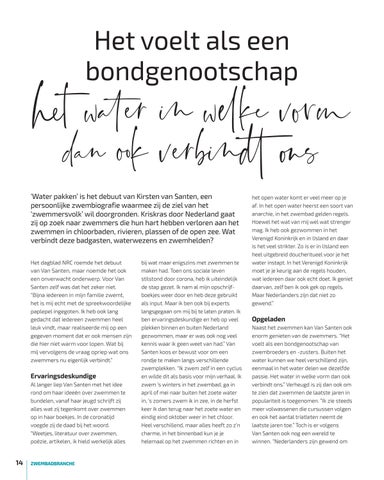 Het voelt als een
bondgenootschap
het water in welke vorm
dan ook verbindt ons
'Water pakken' is het debuut van Kirsten van Santen, een
persoonlijke zwembiografie waarmee zij de ziel van het
'zwemmersvolk' wil doorgronden. Kriskras door Nederland gaat
zij op zoek naar zwemmers die hun hart hebben verloren aan het
zwemmen in chloorbaden, rivieren, plassen of de open zee. Wat
verbindt deze badgasten, waterwezens en zwemhelden?
Het dagblad NRC roemde het debuut
van Van Santen, maar roemde het ook
een onverwacht onderwerp. Voor Van
Santen zelf was dat het zeker niet.
"Bijna iedereen in mijn familie zwemt,
het is mij echt met de spreekwoordelijke
paplepel ingegoten. Ik heb ook lang
gedacht dat iedereen zwemmen heel
leuk vindt, maar realiseerde mij op een
gegeven moment dat er ook mensen zijn
die hier niet warm voor lopen. Wat bij
mij vervolgens de vraag opriep wat ons
zwemmers nu eigenlijk verbindt."
Ervaringsdeskundige
Al langer liep Van Santen met het idee
rond om haar ideeën over zwemmen te
bundelen, vanaf haar jeugd schrijft zij
alles wat zij tegenkomt over zwemmen
op in haar boekjes. In de coronatijd
voegde zij de daad bij het woord.
"Weetjes, literatuur over zwemmen,
poëzie, artikelen, ik hield werkelijk alles
bij wat maar enigszins met zwemmen te
maken had. Toen ons sociale leven
stilstond door corona, heb ik uiteindelijk
de stap gezet. Ik nam al mijn opschrijf-
boekjes weer door en heb deze gebruikt
als input. Maar ik ben ook bij experts
langsgegaan om mij bij te laten praten. Ik
ben ervaringsdeskundige en heb op veel
plekken binnen en buiten Nederland
gezwommen, maar er was ook nog veel
kennis waar ik geen weet van had." Van
Santen koos er bewust voor om een
rondje te maken langs verschillende
zwemplekken. "Ik zwem zelf in een cyclus
en wilde dit als basis voor mijn verhaal. Ik
zwem 's winters in het zwembad, ga in
april of mei naar buiten het zoete water
in, 's zomers zwem ik in zee, in de herfst
keer ik dan terug naar het zoete water en
eindig eind oktober weer in het chloor.
Heel verschillend, maar alles heeft zo z'n
charme, in het binnenbad kun je je
helemaal op het zwemmen richten en in
het open water komt er veel meer op je
af. In het open water heerst een soort van
anarchie, in het zwembad gelden regels.
Hoewel het wat van mij wel wat strenger
mag. Ik heb ook gezwommen in het
Verenigd Koninkrijk en in IJsland en daar
is het veel strikter. Zo is er in IJsland een
heel uitgebreid doucheritueel voor je het
water instapt. In het Verenigd Koninkrijk
moet je je keurig aan de regels houden,
wat iedereen daar ook echt doet. Ik geniet
daarvan, zelf ben ik ook gek op regels.
Maar Nederlanders zijn dat niet zo
gewend."
Opgeladen
Naast het zwemmen kan Van Santen ook
enorm genieten van de zwemmers. "Het
voelt als een bondgenootschap van
zwembroeders en -zusters. Buiten het
water kunnen we heel verschillend zijn,
eenmaal in het water delen we dezelfde
passie. Het water in welke vorm dan ook
verbindt ons." Verheugd is zij dan ook om
te zien dat zwemmen de laatste jaren in
populariteit is toegenomen. "Ik zie steeds
meer volwassenen die cursussen volgen
en ook het aantal triatleten neemt de
laatste jaren toe." Toch is er volgens
Van Santen ook nog een wereld te
winnen. "Nederlanders zijn gewend om
14
ZWEMBADBRANCHE